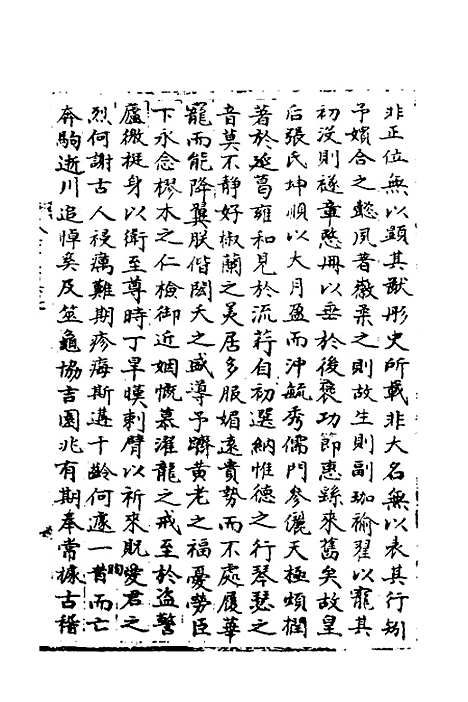 非正位無以顕其猷彤史所載非大名無以表其行矧
予嬪合之懿夙著徽柔之則故生則副珈褕翟以寵其
初没則䆳章愍冊以垂於後褒功節惠繇來舊矣故皇
后張氏坤順以大月盈而沖毓秀儒門參儷天極頍櫚
著於延葛雍和見於流荇自初選納惟德之行琴瑟之
音莫不静好椒蘭之美居多服媚遠貴勢而不處履華
寵而能降異朕偕閎天之盛導予躋黄老之福憂勞臣
下永念樛木之仁檢御近姻慨慕濯龍之戒至於盗警
廬徼挺身以衛至尊時丁旱暵刺臂以祈來貺愛君之
烈何謝古人祲癘難期疹痗斯遘十齡何遽一昔而亡
奔駒逝川追悼奚及筮龜協吉園兆有期奉常據古稽